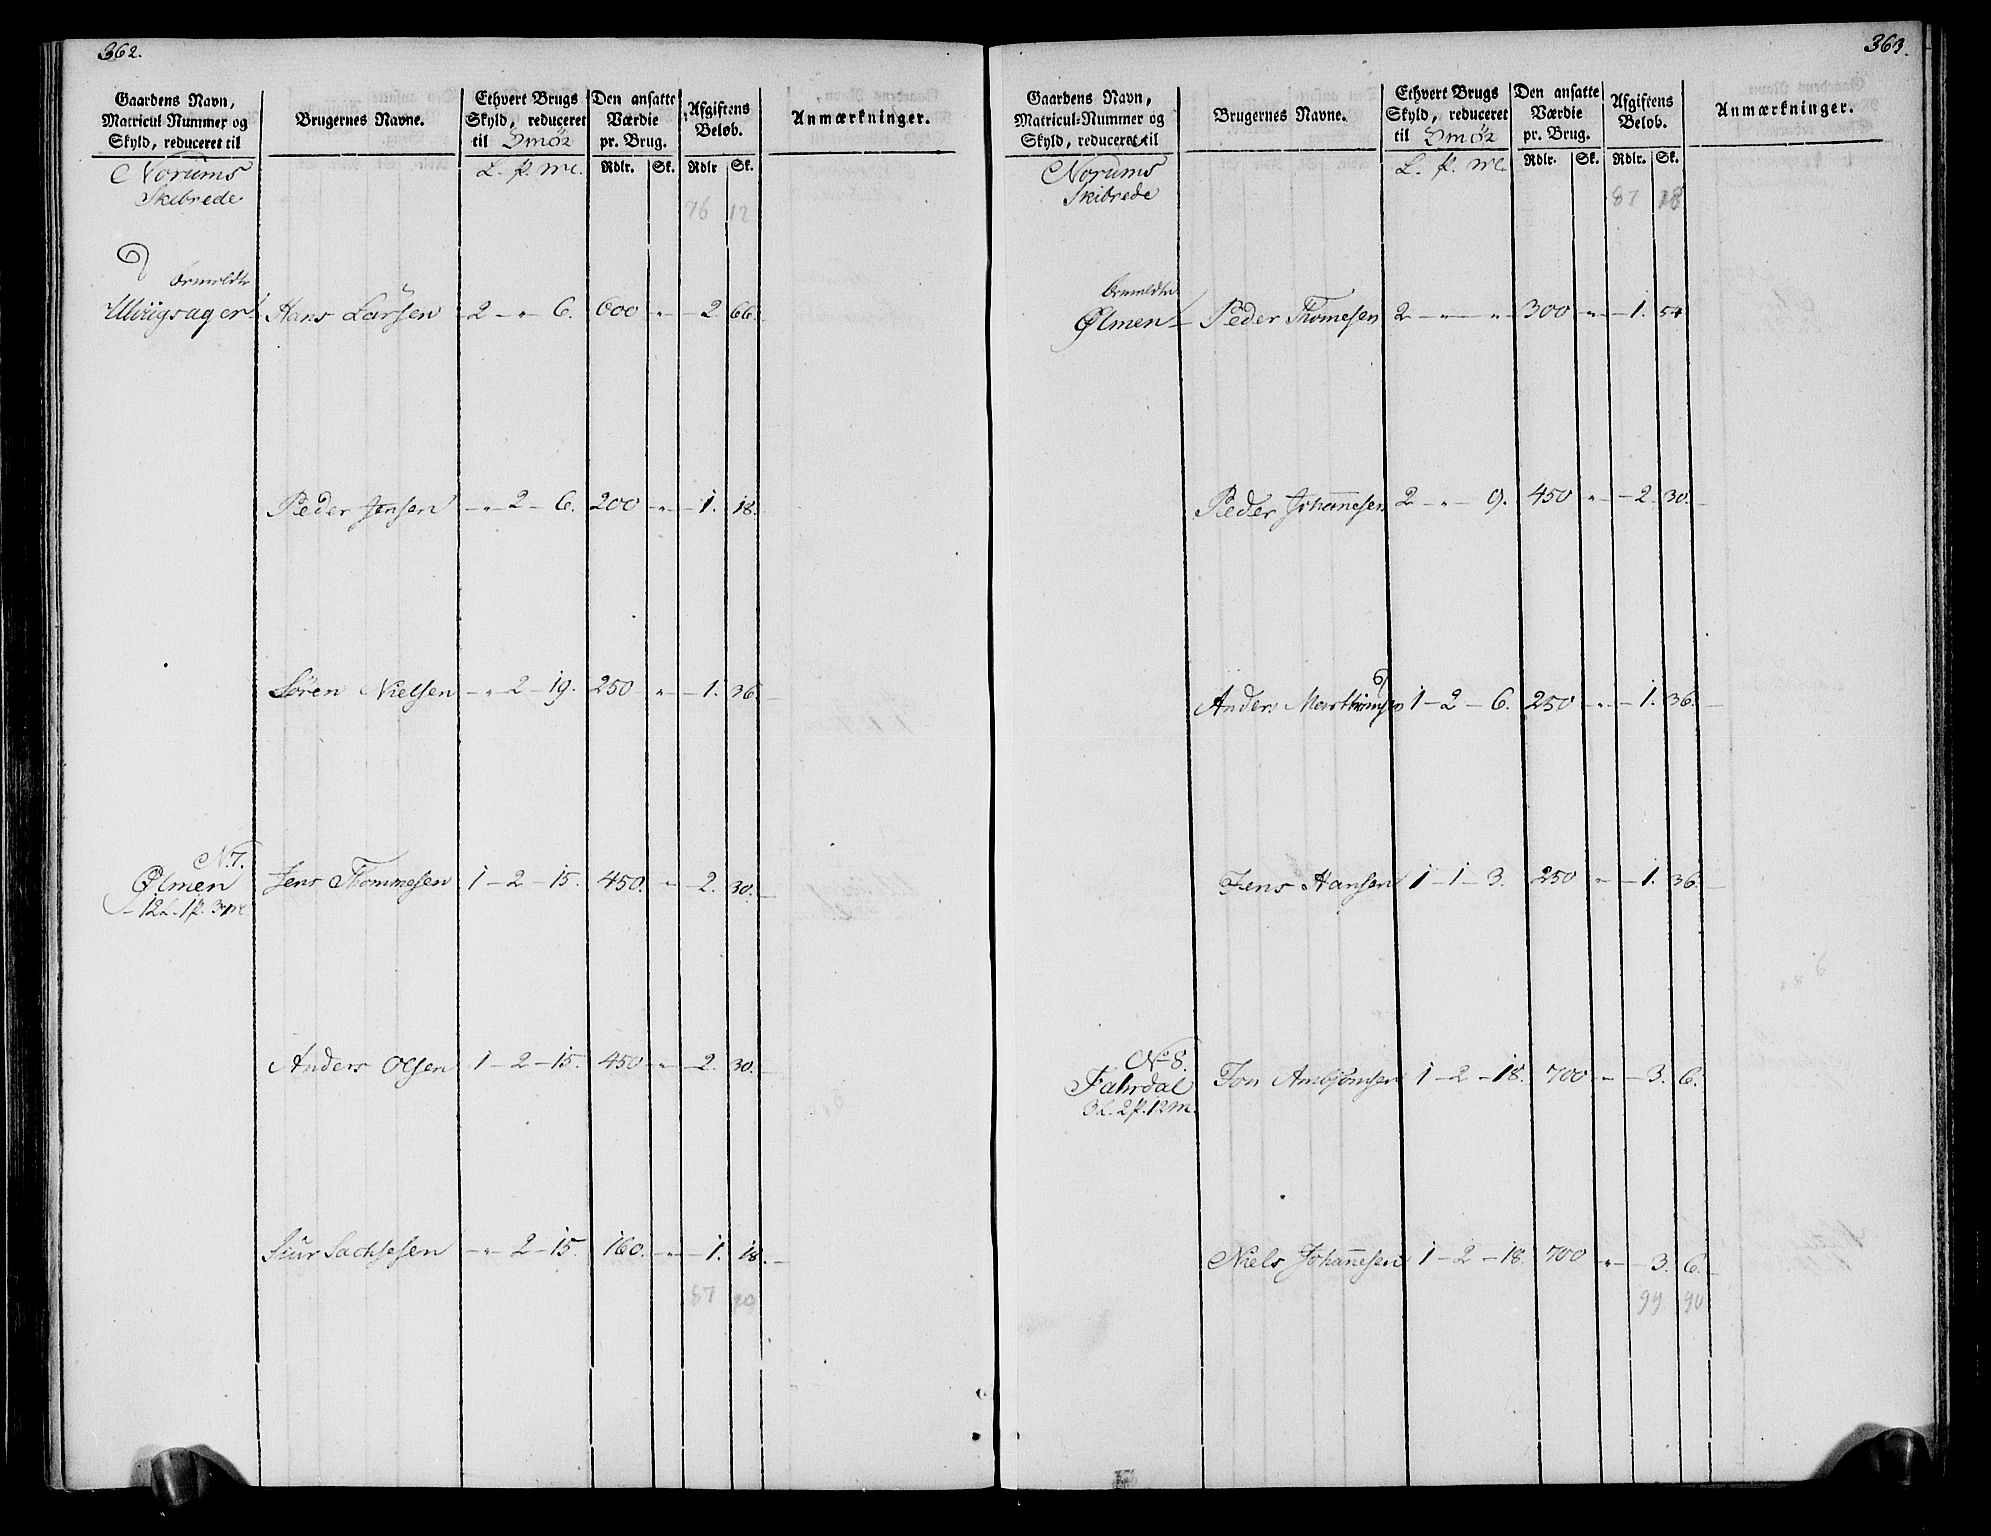 362.
Gaardens Navn,
Matricul-Nummer og
Skyld, reduceret til
Brugernes Navne.
Ethvert Brugs
Skyld, reduceret
til Smör
Den ansatte
Værdie
pr. Brug.
Afgiftens
Beløb.
Anmærkninger.
Norums
Skibrede
L. p. mc.
Rdlr. Sk. Rdlr Sk.
76 12
Ormeldte
Hans Larsen 2 - " - 6. 600 " - 2. 66.
Peder Jensen - " - 2 - 6. 200 - " - 1. 18.
Sören Nielsen - " - 2 - 19. 250 " - 1. 36.
N. 7.
Ølmen Jens Thommesen 1 - 2 - 15. 450. " - 2. 30.
Anders Olsen 1 - 2 - 15. 450 - " - 2. 30.
Siur Sachsesen - " - 2 - 15. 160. - " - 1. 18.
87
363.
Gaardens Navn,
Matricul-Nummer og
Skyld, reduceret til
Brugernes Navne.
Ethvert Brugs
Skyld, reduceret
til Smör
Den ansatte
Værdie
pr. Brug.
Afgiftens
Beløb.
Anmærkninger.
Norums
Skibrede
L. p. mc.
Rdlr. Sk. Rdlr. Sk.
87 18
Ormeldte
Ølmen Peder Thomesen 2 - " - " - 300 - " - 1. 54
Peder Johannesen 2 - " - 9. 450 " - 2. 30.
Anders 1 - 2 - 6. 250 - " - 1. 36.
Jens Hansen 1 - 1 - 3. 250 " - 1. 36.
No 8.
Fahrdal Jon 1 - 2 - 18. 700 " - 3. 6.
3 L. 2 p. 12 m.
Niels Johannesen 1 - 2 - 18. 700 - " - 3. 6.
99 90